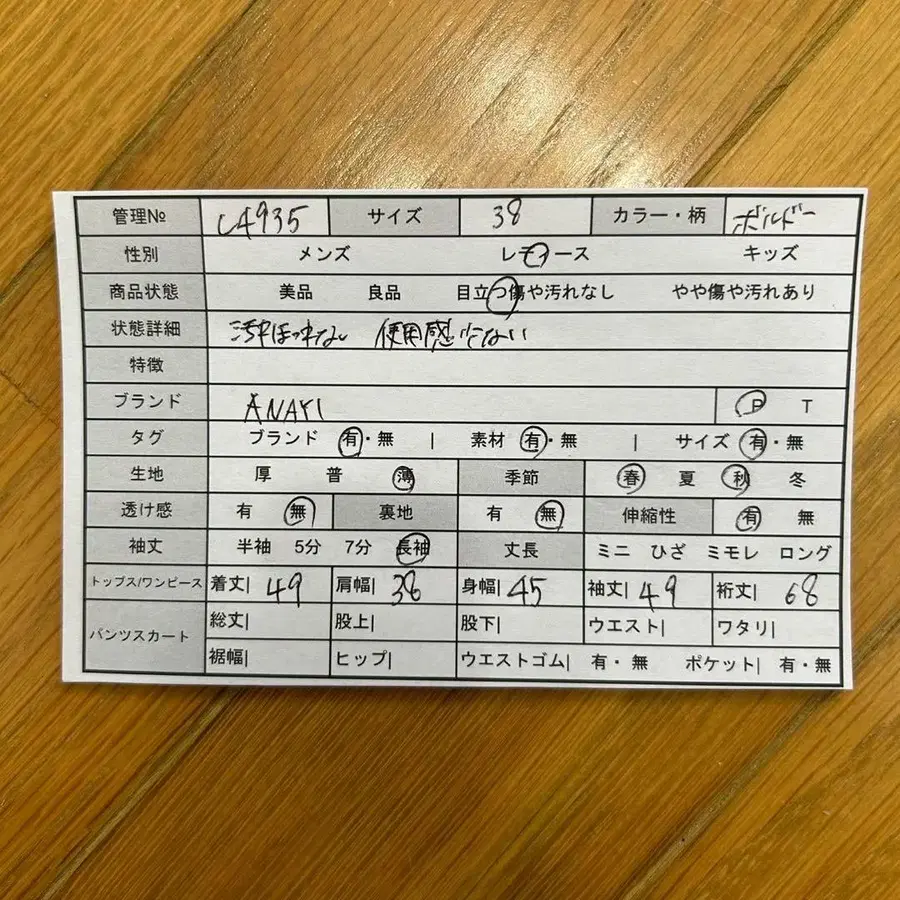 管理№ L4935 サイズ 38 カラー・柄 ボルドー
性別 メンズ レディース キッズ
商品状態 美品 良品 目立つ傷や汚れなし やや傷や汚れあり
状態詳細 汚れほつれなし 使用感少ない
特徴
ブランド ANAYI P T
タグ ブランド 有・無 | 素材 有・無 | サイズ 有・無
生地 厚 普 薄 季節 春 夏 秋 冬
透け感 有 無 裏地 有 無 伸縮性 有 無
袖丈 半袖 5分 7分 長袖 丈長 ミニ ひざ ミモレ ロング
トップス/ワンピース 着丈| 49 肩幅| 38 身幅| 45 袖丈| 49 裄丈| 68
パンツスカート 総丈| 股上| 股下| ウエスト| ワタリ|
裾幅| ヒップ| ウエストゴム| 有・無 ポケット| 有・無